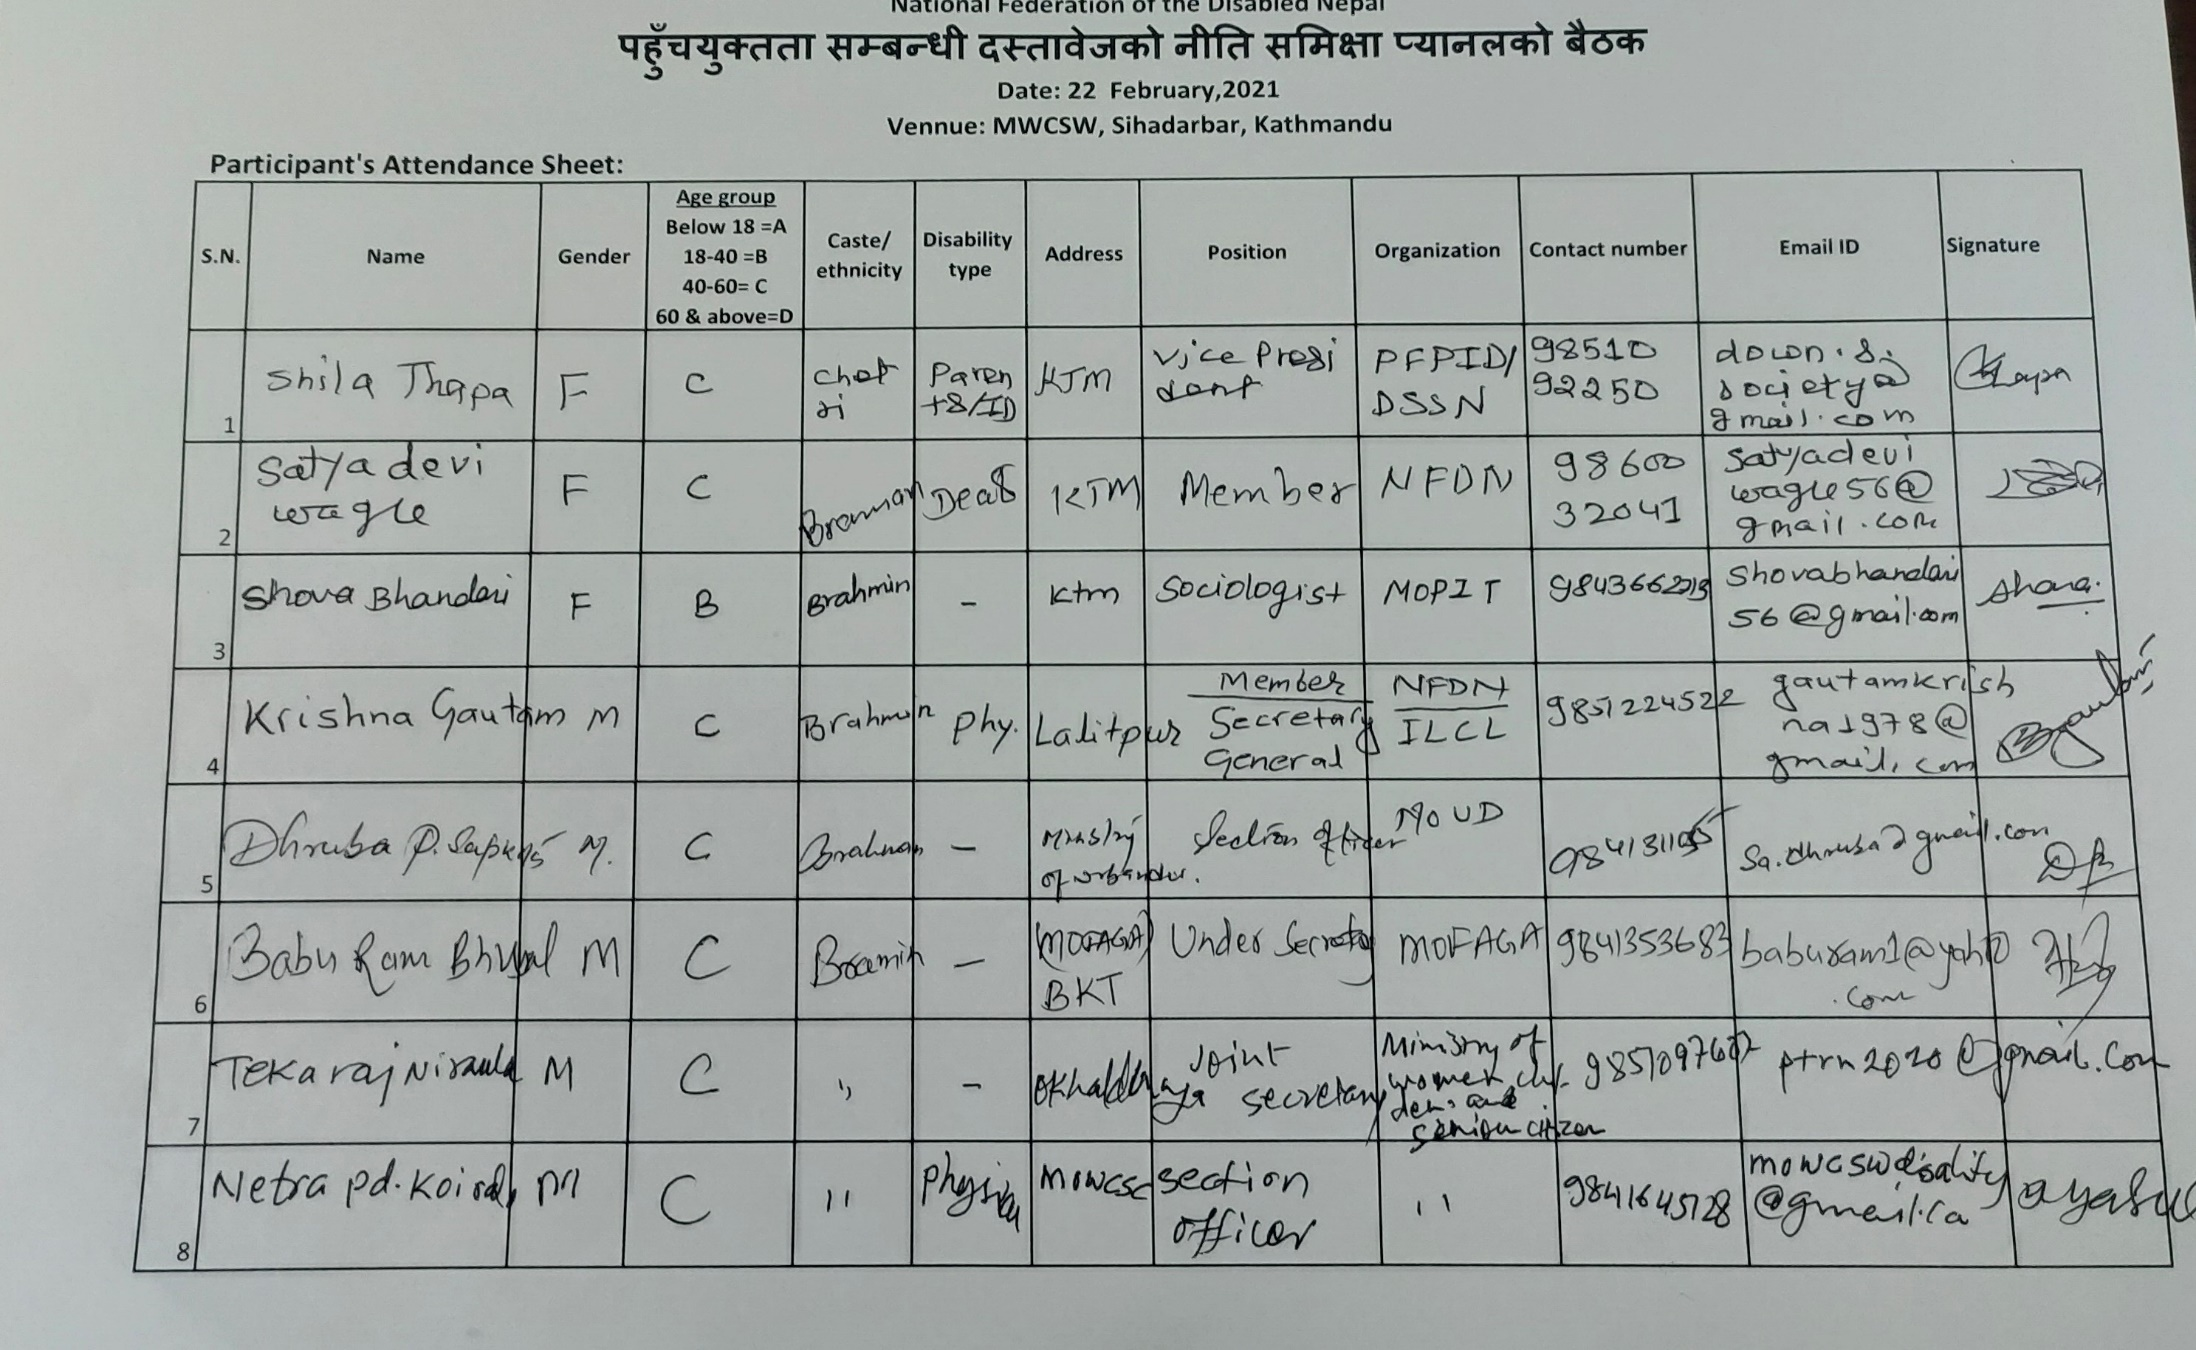 National Federation of the Disabled Nepal
पहुँचयुक्तता सम्बन्धी दस्तावेजको नीति समिक्षा प्यानलको बैठक
Date: 22 February,2021
Vennue: MWCSW, Sihadarbar, Kathmandu
Participant's Attendance Sheet:
S.N. Name Gender Age group Below 18 =A 18-40 =B 40-60= C 60 & above=D Caste/ ethnicity Disability type Address Position Organization Contact number Email ID Signature
1 Shila Thapa F C Chet ri Paren ts/ID KTM Vice Presi dent PFPID/ DSSN 98510 92250 down.s. society@ gmail.com
2 Satya devi wagle F C Braman Deaf KTM Member NFDN 98600 32041 satyadevi wagle56@ gmail.com
3 Shova Bhandari F B Brahmin - Ktm Sociologist MOPIT 9843662019 Shovabhandari 56@gmail.com
4 Krishna Gautam M C Brahmin Phy. Lalitpur Member Secretary General NFDN ILCL 9851224522 gautamkrish na1978@ gmail.com
5 Dhruba P. M. C - Section Officer MOUD
6 Babu Ram Bhusal M C Bramin - (MOFAGA) BKT Under Secretary MOFAGA 9841353683 baburam1@yaho .com
7 Tekaraj Niraula M C ,, - Joint secretary Ministry of women, chil- dern and senior citizen ptrn2020@gmail.com
8 Netra pd. Koirala M C ,, section officer ,, 9841645728